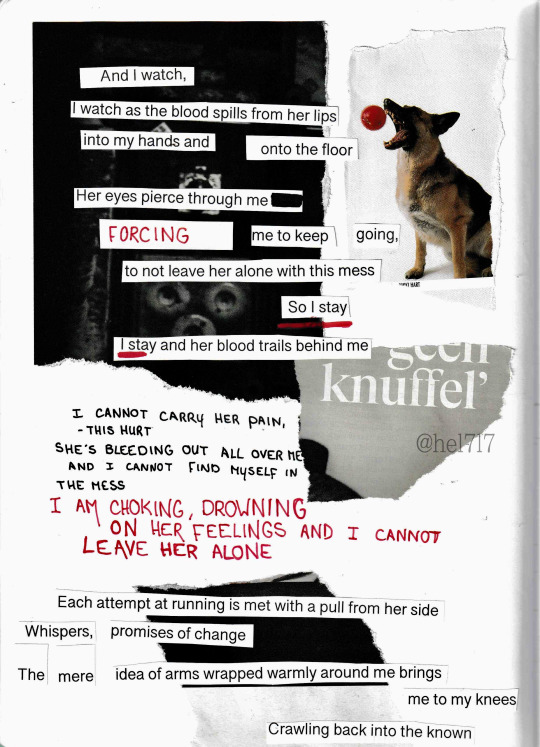 And I watch,
I watch as the blood spills from her lips
into my hands and
onto the floor
Her eyes pierce through me
FORCING me to keep going,
to not leave her alone with this mess
So I stay
I stay and her blood trails behind me
geen
knuffel'
@hel717
I CANNOT CARRY HER PAIN,
- THIS HURT
SHE'S BLEEDING OUT ALL OVER ME
AND I CANNOT FIND MYSELF IN
THE MESS
I AM CHOKING, DROWNING
ON HER FEELINGS AND I CANNOT
LEAVE HER ALONE
Each attempt at running is met with a pull from her side
Whispers, promises of change
The mere idea of arms wrapped warmly around me brings
me to my knees
Crawling back into the known